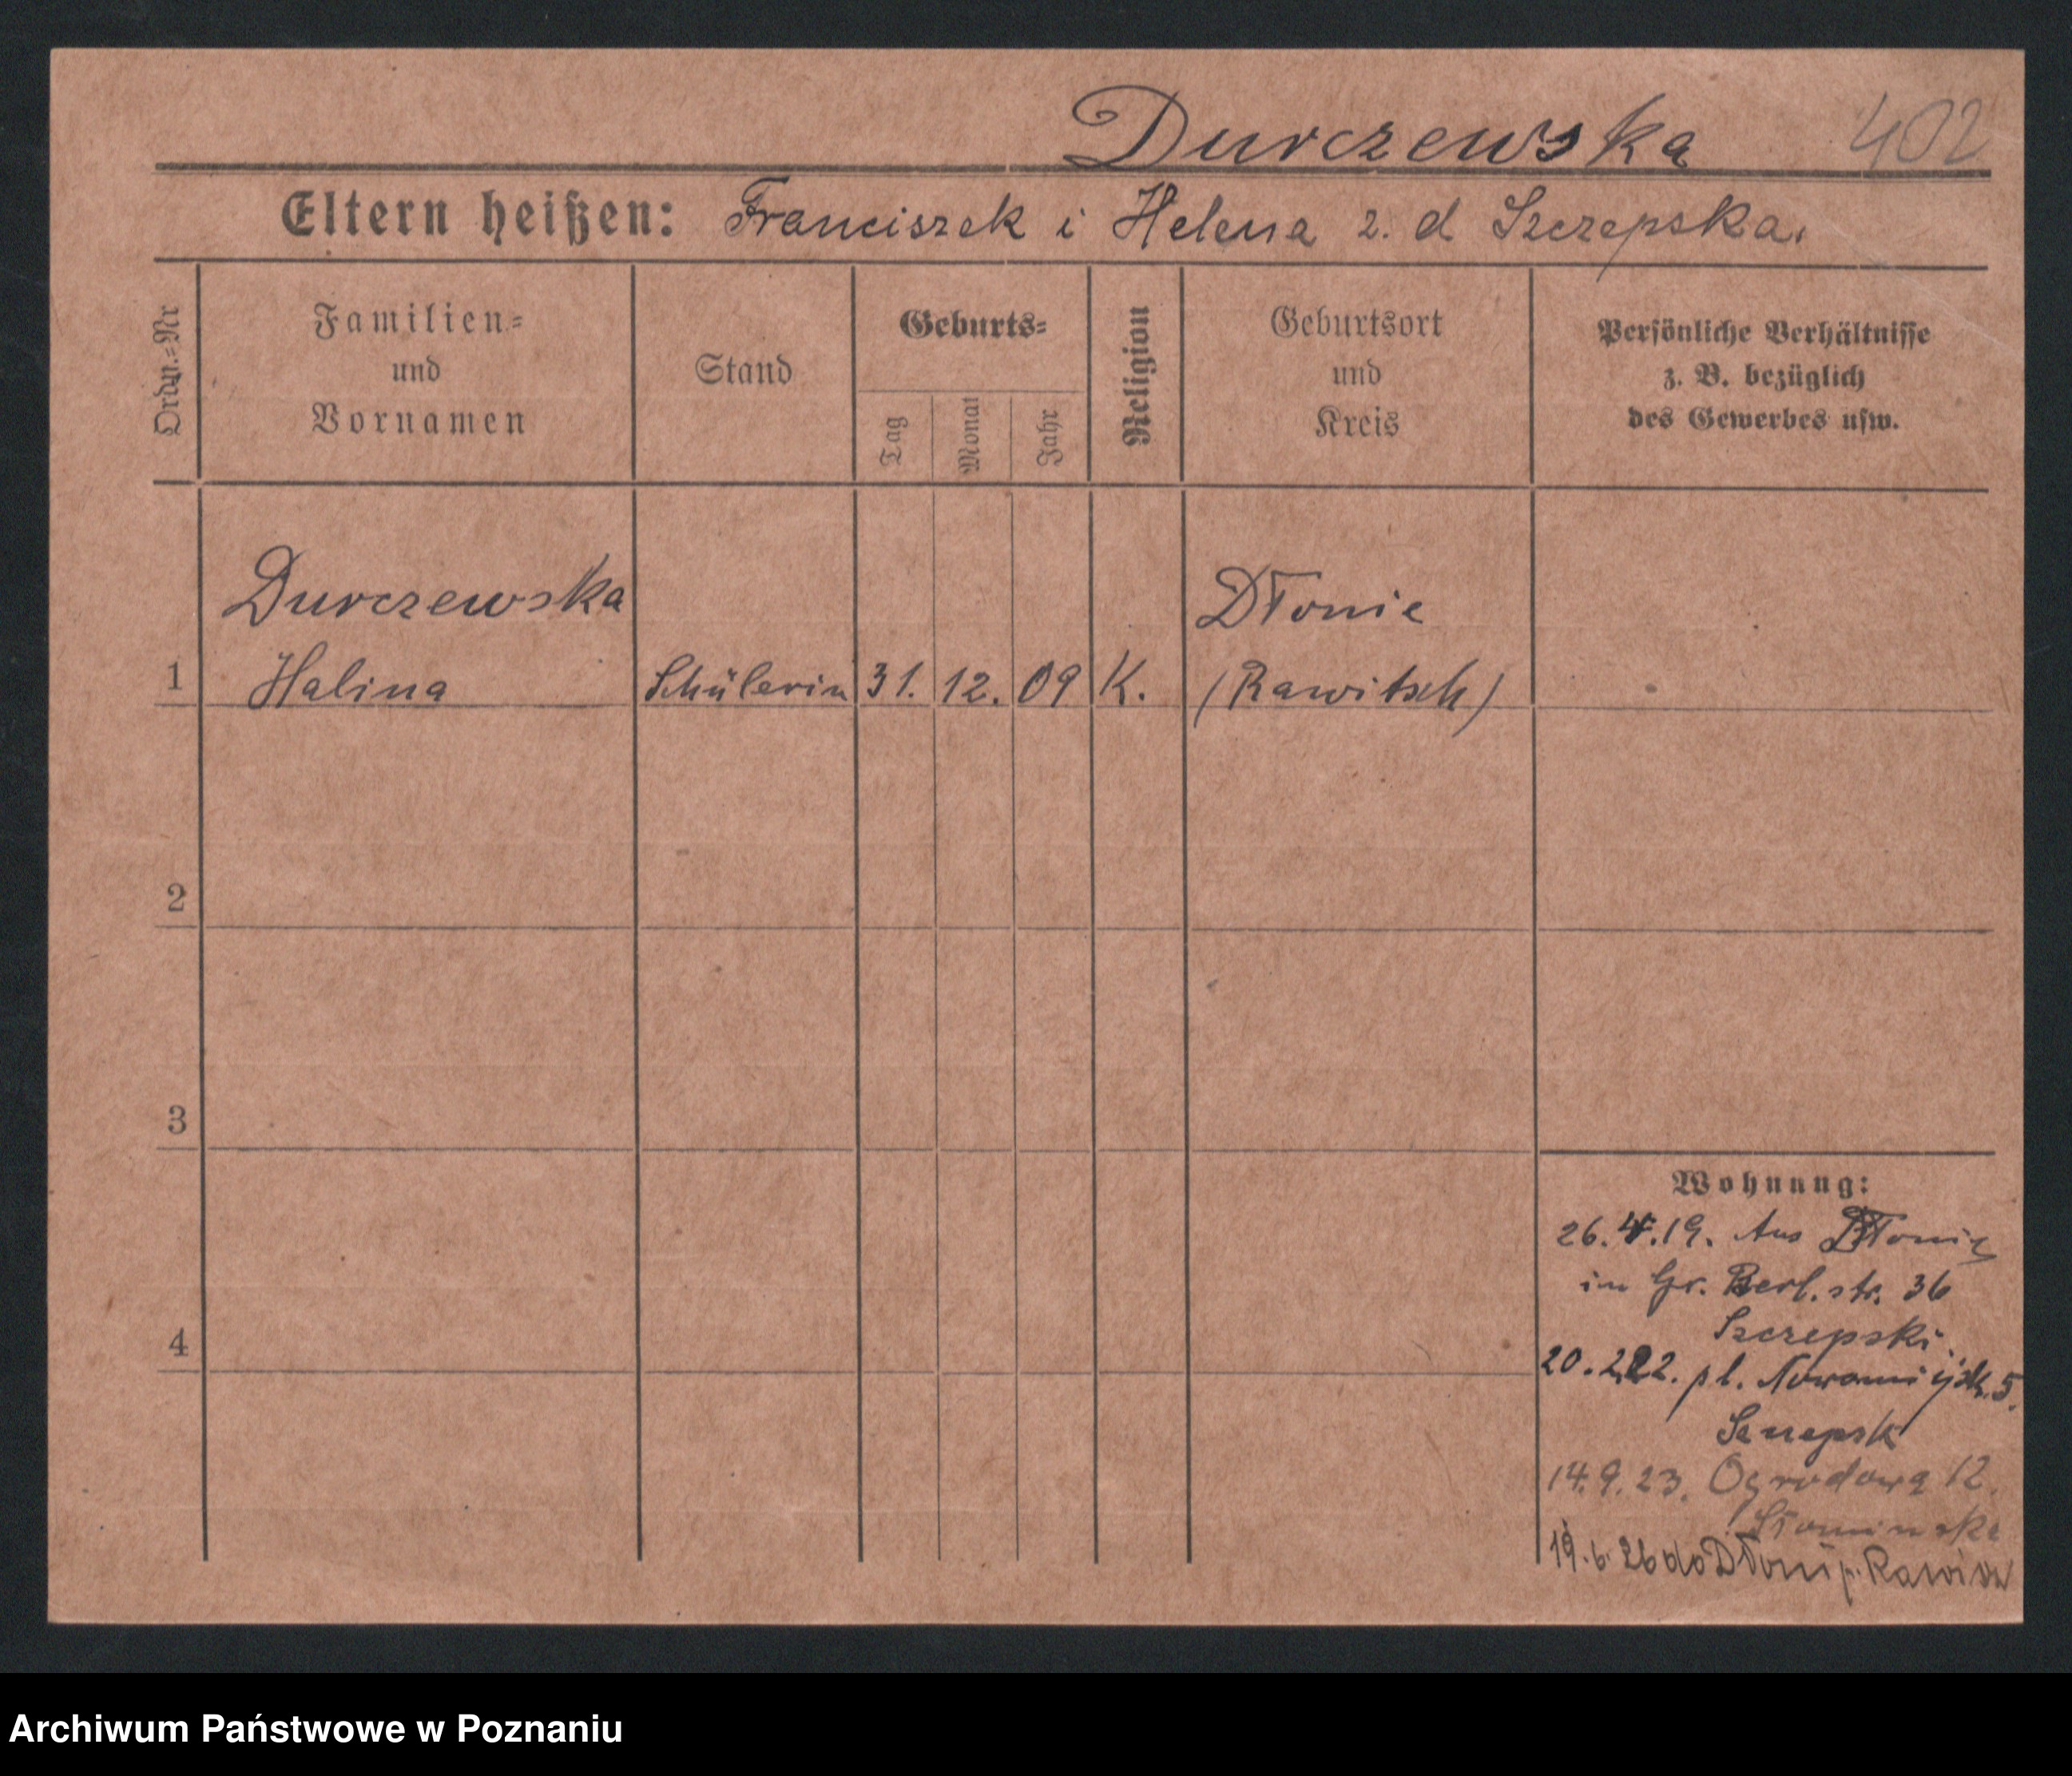 Durczewska 402
Eltern heißen: Franciszek i Helena z. d Szczepska.
Ordn.=Nr
Familien=
und
Vornamen
Stand
Geburts=
Tag
Monat
Jahr
Religion
Geburtsort
und
Kreis
Persönliche Verhältnisse
z. B. bezüglich
des Gewerbes usw.
Durczewska
Dłonie
1 Halina Schülerin 31. 12. 09 K. (Rawitsch)
2
3
4
Wohnung:
26.4.19. Aus Dłonie
in Gr. Berl. str. 36
Szczepski.
20.2.22. pl. Nowomiejsk. 5.
14.9.23. Ogrodowa 12.
Słominska
19.6.26 do Dłoni p. Rawicz
Archiwum Państwowe w Poznaniu